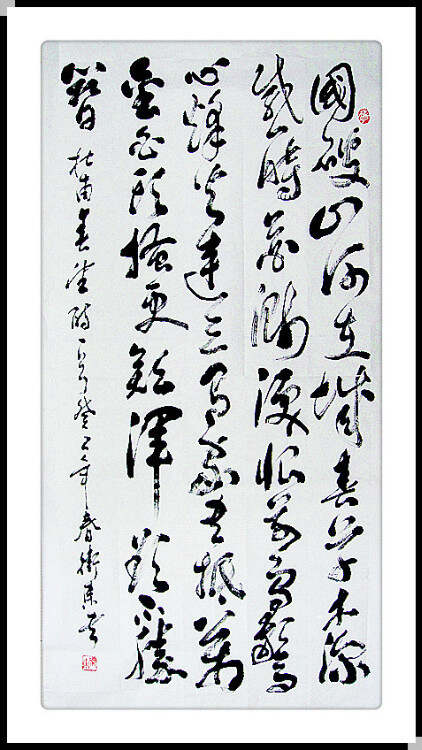 國破山河在城春草木深
感時花濺淚恨別鳥驚
心烽火連三月家書抵萬
金白頭搔更短渾欲不勝
簪 杜甫春望詩一首癸巳年春衛東書